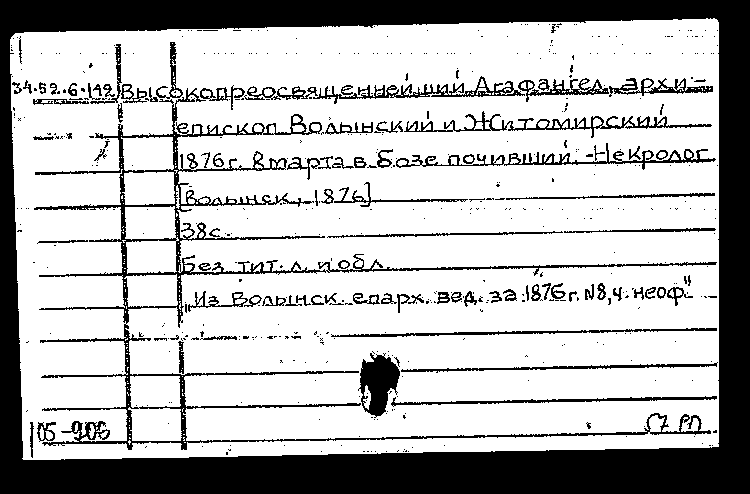 34.52.6.142 Высокопреосвященнейший Агафангел, архи-
епископ Волынский и Житомирский
1876 г. 8 марта в бозе почивший. - Некролог
[Волынск, 1876]
38 с.
Без тит. л. и обл.
"Из Волынск. епарх. вед. за 1876 г. N8, ч. неоф."
05-906